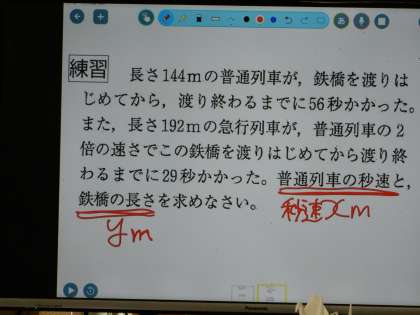 練習 長さ144mの普通列車が，鉄橋を渡りは
じめてから，渡り終わるまでに56秒かかった。
また，長さ192mの急行列車が，普通列車の2
倍の速さでこの鉄橋を渡りはじめてから渡り終
わるまでに29秒かかった。普通列車の秒速と，
鉄橋の長さを求めなさい。 秒速xm
ym
あ
Panasonic